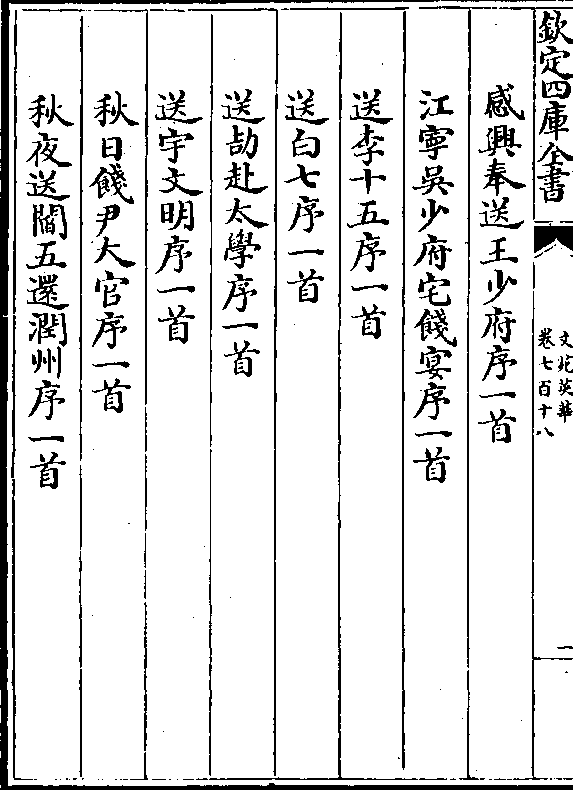 欽定四庫全書
文苑英華
卷七百十八
一
感興奉送王少府序一首
江寧吳少府宅餞宴序一首
送李十五序一首
送白七序一首
送劼赴太學序一首
送宇文明序一首
秋日餞尹大官序一首
秋夜送閻五還潤州序一首